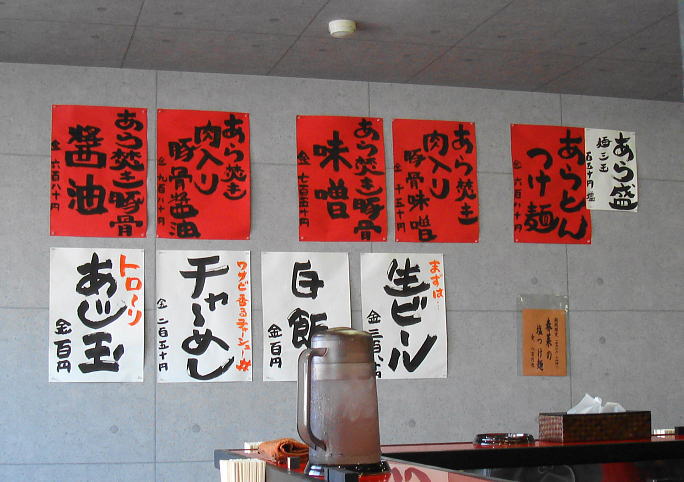 あら焚き豚骨
醤油
金 六百八十円
あら焚き
肉入り
豚骨醤油
金 九百八十円
あら焚き豚骨
味噌
金 七百五十円
あら焚き
肉入り
豚骨味噌
金 千五十円
あらとん
つけ麺
あら盛
麺三玉
トロ〜リ
あじ玉
金 百円
ワサビ香るチャーシュー
チャ〜めし
金 二百五十円
白飯
金 百円
まずは…
生ビール
春菜の
塩つけ麺